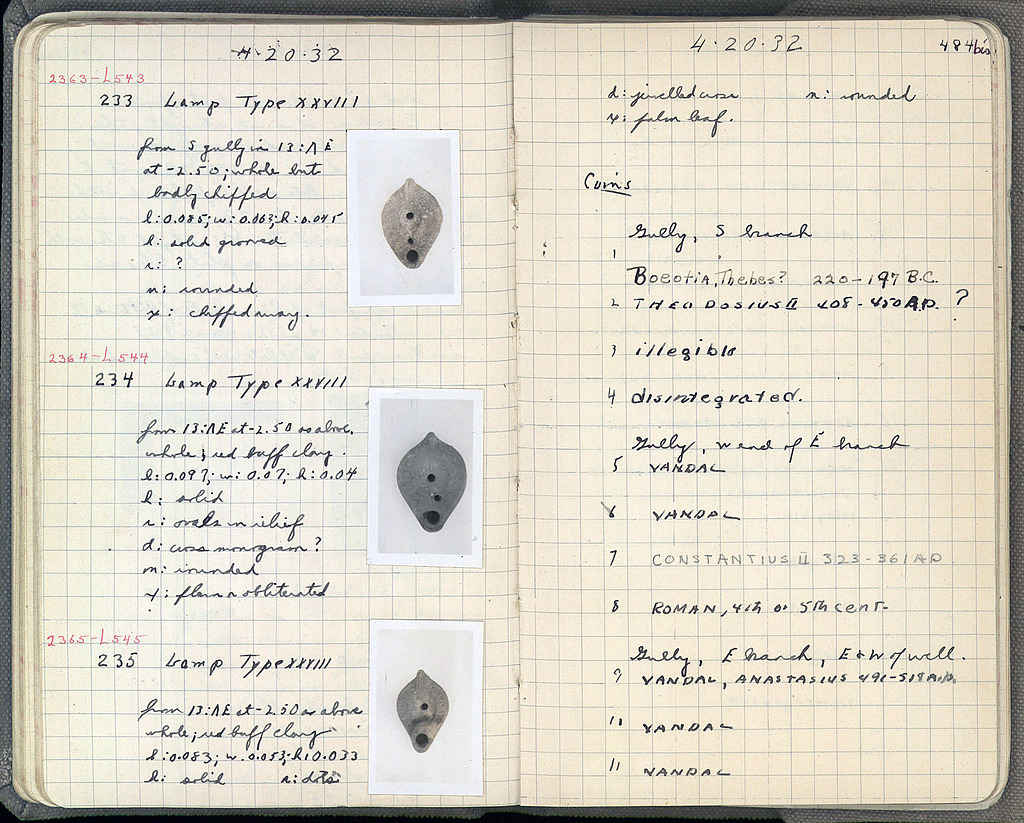 4·20·32
2363-L543
233 Lamp Type XXVIII
from S gully in 13:ΛE
at -2.50; whole but
badly chipped
l:0.085; w:0.063; h:0.045
h: solid grooved
r: ?
n: rounded
x: chipped away.
2364-L544
234 Lamp Type XXVIII
from 13:ΛE at -2.50 as above.
whole; red buff clay.
l:0.097; w:0.07; h:0.04
h: solid
r: ovals in relief
d: cross monogram?
n: rounded
x: obliterated
2365-L545
235 Lamp Type XXVIII
from 13:ΛE at -2.50 as above
whole; red buff clay
l:0.083; w:0.053; h:0.033
h: solid r: dots
4·20·32
484bis
d: jewelled cross n: rounded
x: palm leaf.
Coins
Gully, S branch
1
Boeotia, Thebes? 220-197 B.C.
2 THEODOSIUS II 408-450 A.D. ?
3 illegible
4 disintegrated.
Gully, W end of E branch
5 VANDAL
6 VANDAL
7 CONSTANTIUS II 323-361 AD
8 ROMAN, 4th or 5th cent-
Gully, E branch, E & W of well.
9 VANDAL, ANASTASIUS 491-518 A.D.
11 VANDAL
11 VANDAL